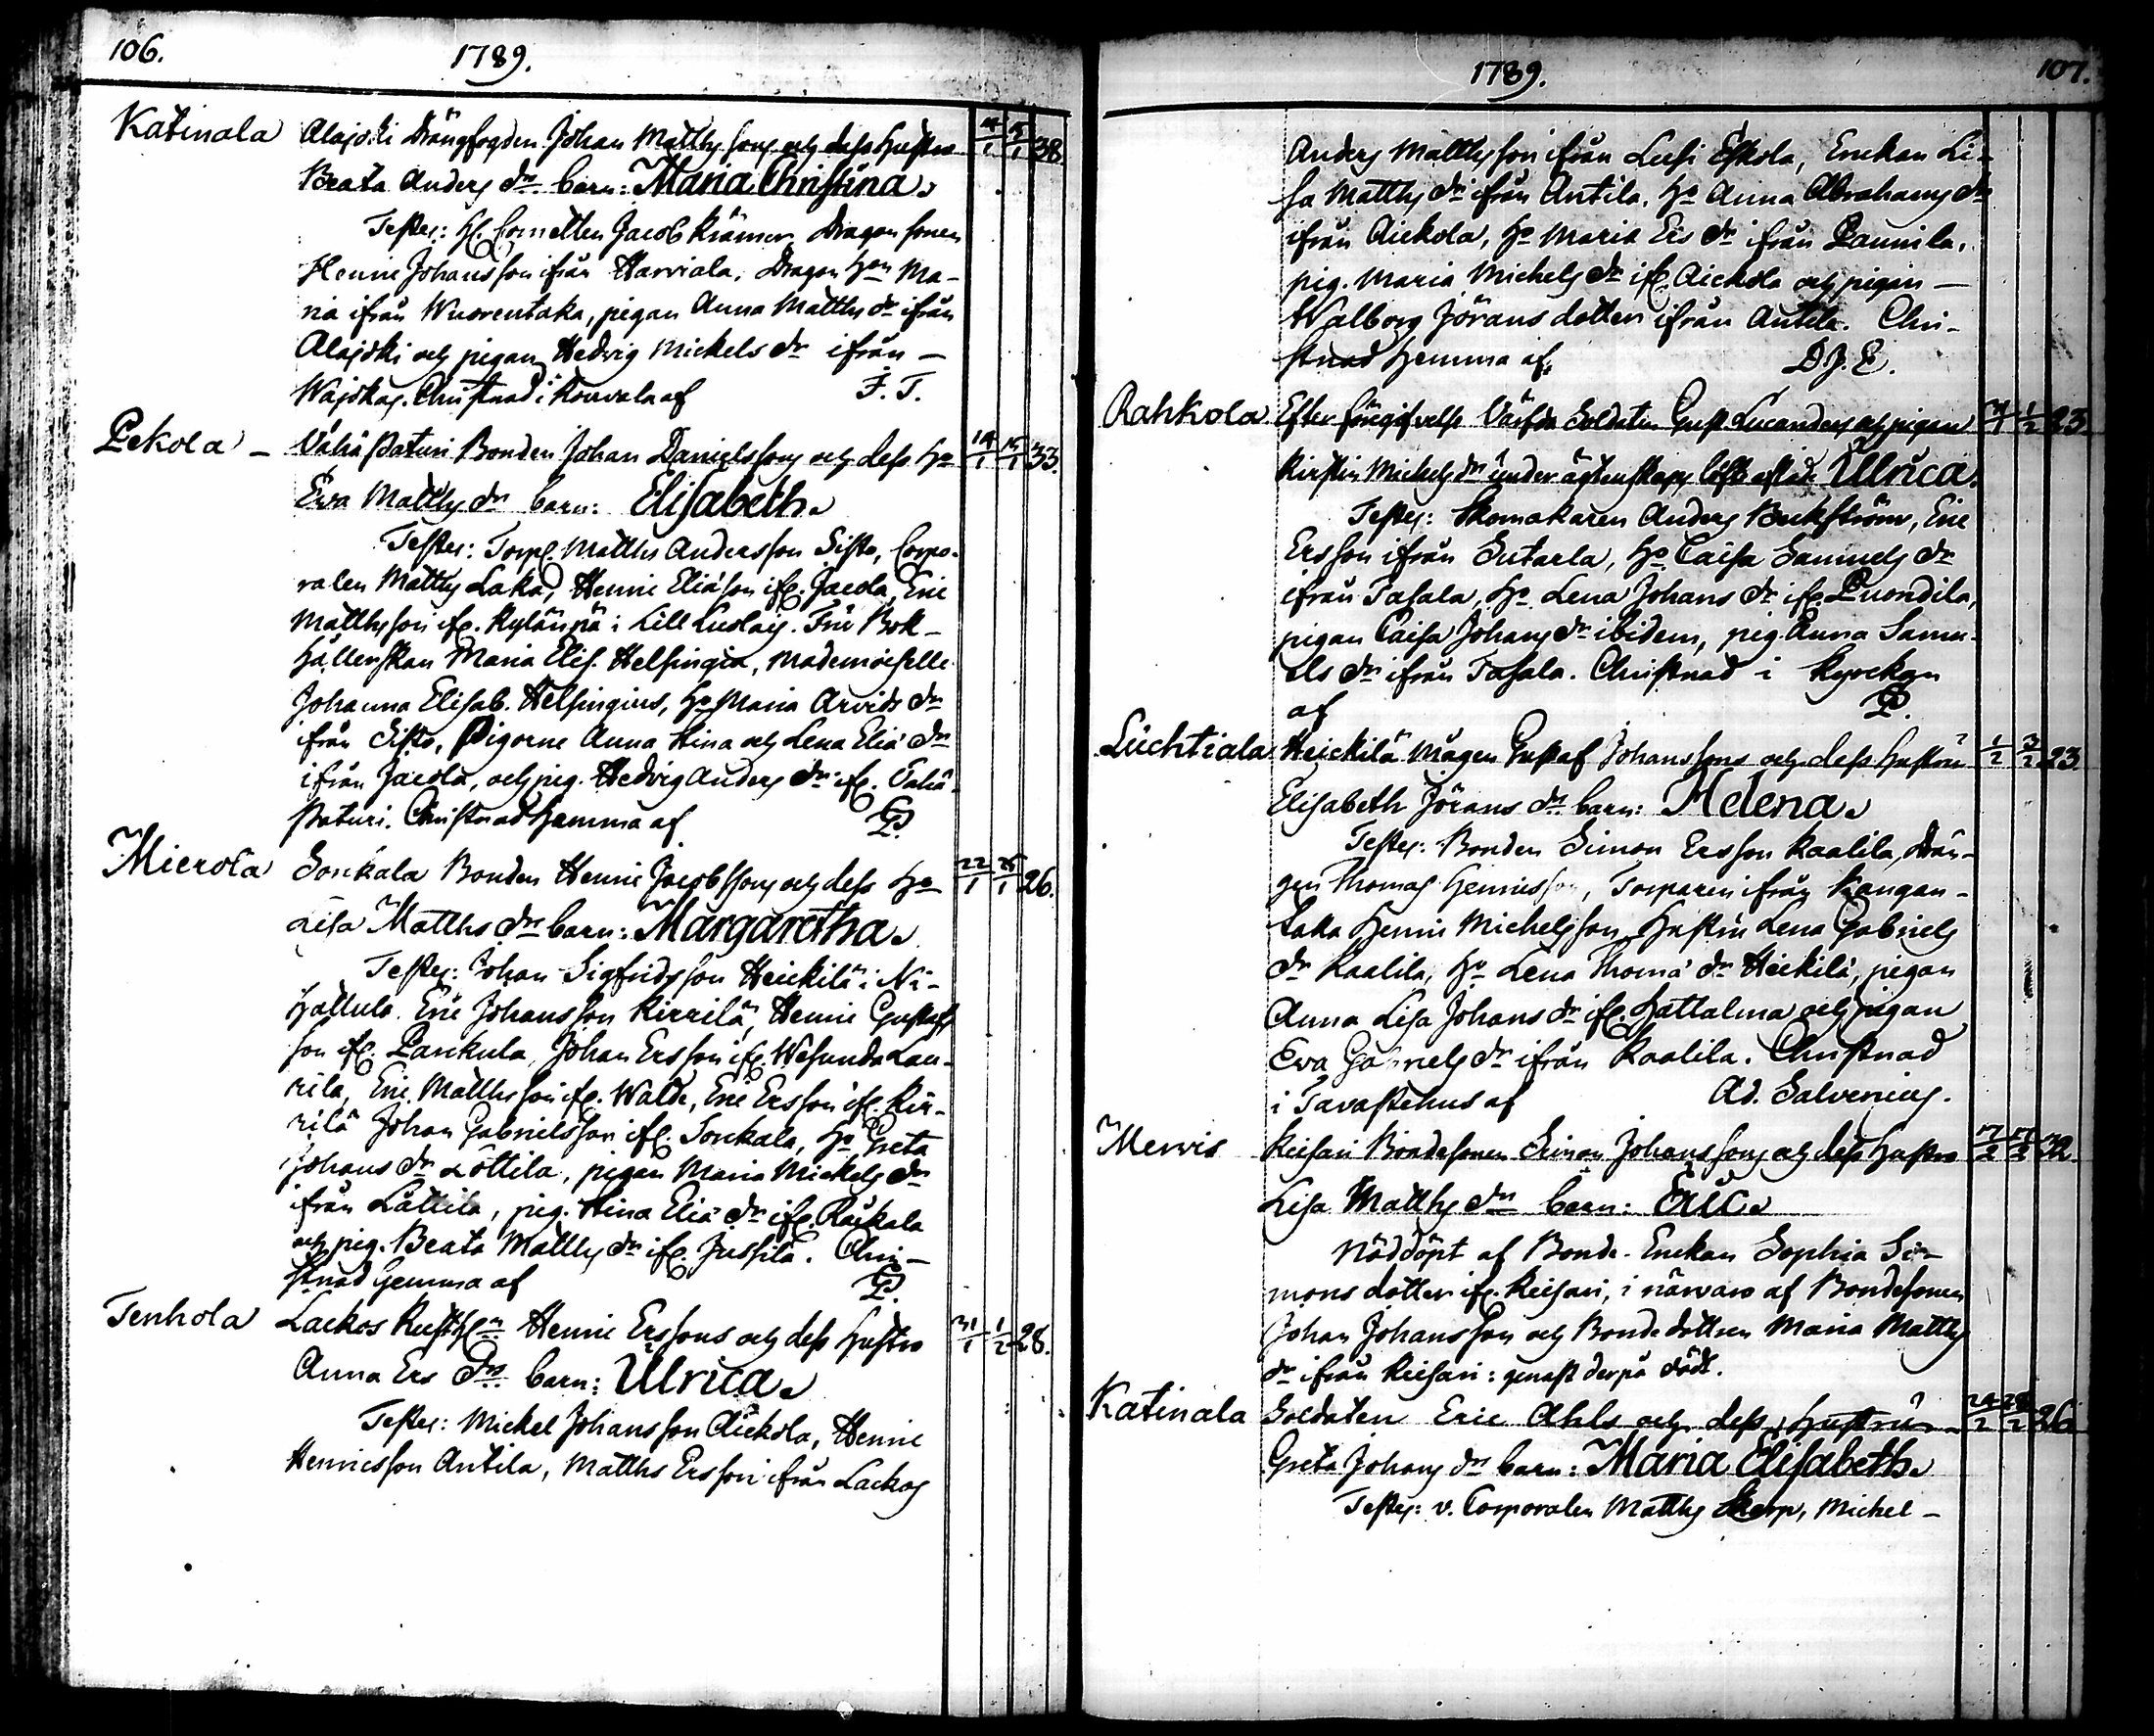 106.
1789.
Katinala Alajoki Drängfogden Johan Matthssons och dess hustro 14/1 15/1 38
Beata Anders dr. barn: Maria Christina.
Testes: H. Cornetten Jacob Krämer Dragon sonen
Henric Johansson ifrån Harviala, Dragon Hon Ma-
ria ifrån Wuorentaka, pigan Anna Matths dr ifrån
Alajoki och pigan Hedvig Mickels dr ifrån —
Wajskas. Christnad i af F. T.
Pekola — Vähä Paturi Bonden Johan Danielssons och dess ho 14/1 15/1 33.
Ewa Matths dr barn: Elisabeth.
Testes: Torp. Matths Andersson Sisto, Corpo-
ralen Matths Laka, Henric Eliä son ifr. Jacola, Eric
Matthsson ifr. Kylänpä i Lill Luolais. Fru Bok-
hållerskan Maria Elis. Helsingia, Mademoiselle
Johanna Elisab. Helsingius, Ho Maria Arvids dr
ifrån Sisto, Pigorne Anna Stina och Lena Eliä dr
ifrån Jacola, och pig. Hedvig Anders dr ifr. Vähä
Paturi. Christnad hemma af P.
Mierola Sorikala Bonden Henric Jacobssons och dess ho 22/1 25/1 26.
Lisa Matths dr barn: Margaretha.
Testes: Johan Sigfridsson Heickilä i Ni-
hattula. Eric Johansson Kirrilä, Henric Gustafs
son ifr. Parikula, Johan Ersson ifr. Wesunda Lau-
rila, Eric Matthsson ifr. Walde, Eric Ersson ifr. Kir-
rilä Johan Gabrielsson ifr. Sorikala, ho Greta
Johans dr Lottila, pigan Maria Mickels dr
ifrån Lottila, pig. Stina Eliä dr ifr. Räikala
och pig. Beata Matths dr ifr. Jussila. Chri-
stnad hemma af P.
Tenhola Lackos Rusth:n Henric Erssons och dess hustro 31/1 1/2 28.
Anna Ers Dr. barn: Ulrica.
Testes: Mickel Johansson Äickola, Henric
Henricsson Antila, Matths Ersson ifrån Lackos
1789.
107.
Anders Matthsson ifrån Lusi Eskola, Enckan Li-
sa Matths dr ifrån Antila. ho Anna Abrahams dr
ifrån Äickola, ho Maria Ers dr ifrån Paunila,
pig. Maria Michels dr ifr. Äickola och pigan —
Walborg Jörans dotter ifrån Antila. Chri-
stnad hemma af. D.J.E.
Rahkola Efter föregifvelse Värfda Soldaten Gust Lucanders och pigan 31/1 1/2 23.
Kirstin Michels dr under ägtenskaps löfte aflade Ulrica.
Testes: Skomakaren Anders Beckström, Eric
Ersson ifrån Sutarla, ho Caisa Samuels dr
ifrån Tasala, ho Lena Johans dr ifr. Puondila,
pigan Caisa Johans dr ibidem, pig. Anna Samu-
els dr ifrån Tasala. Christnad i kyrckan
af P.
Luchtiala Heickilä Mågen Gustaf Johanssons och dess hustru 1/2 3/2 23.
Elisabeth Jörans dr barn: Helena.
Testes: Bonden Simon Ersson Kaalila, Drän-
gen Thomas Henricsson, Torparen ifrån Kangan-
taka Henric Michelsson, Hustru Lena Gabriels
dr Kaalila, ho Lena Thoma dr Heickilä, pigan
Anna Lisa Johans dr ifr. Hattalma och pigan
Ewa Gabriels dr ifrån Kaalila. Christnad
i Tavastehus af Ad. Salvenius.
Mervis Keisari Bondesonen Simon Johanssons och dess hustro 17/2 17/2 32
Lisa Matths dr barn: Eric.
Nöddöpt af Bonde-Enckan Sophia Si-
mons dotter ifr. Keisari, i närvaro af Bondesonen
Johan Johansson och Bonde dottren Maria Matths
dr ifrån Keisari: genast derpå dödt.
Katinala Soldaten Eric Ahls och dess hustru 28/2 26
Greta Johans dr barn: Maria Elisabeth.
Testes: v. Corporalen Matths Skarp, Michel —